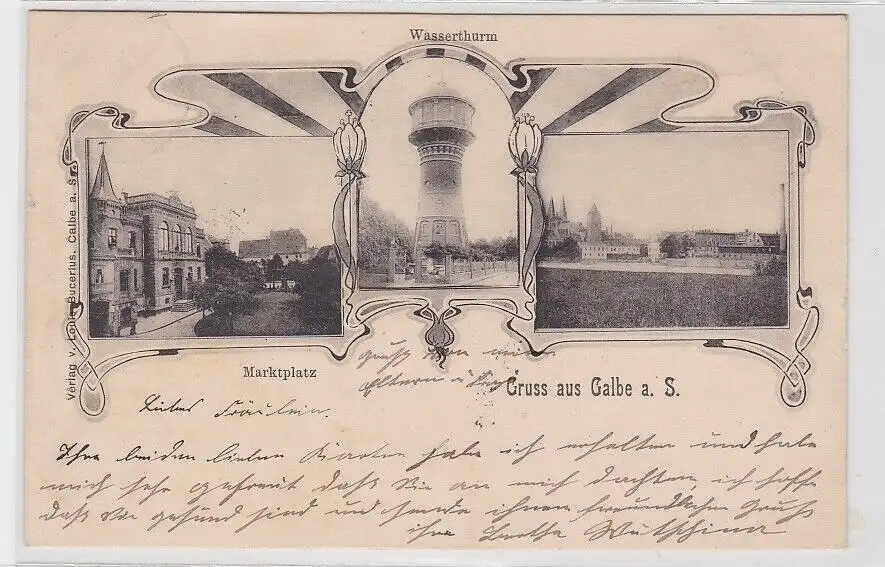 Wasserthurm
Verlag v. Louis Bucerius. Calbe a. S.
Marktplatz
Gruss aus Calbe a. S.
Gruß von meinen
Eltern u.
Liebes Fräulein.
Ihre beiden lieben Karten habe ich erhalten und habe
mich sehr gefreut daß Sie an mich dachten, ich hoffe
daß Sie gesund sind und sende ihnen freundlichen Gruß
ihre Bertha